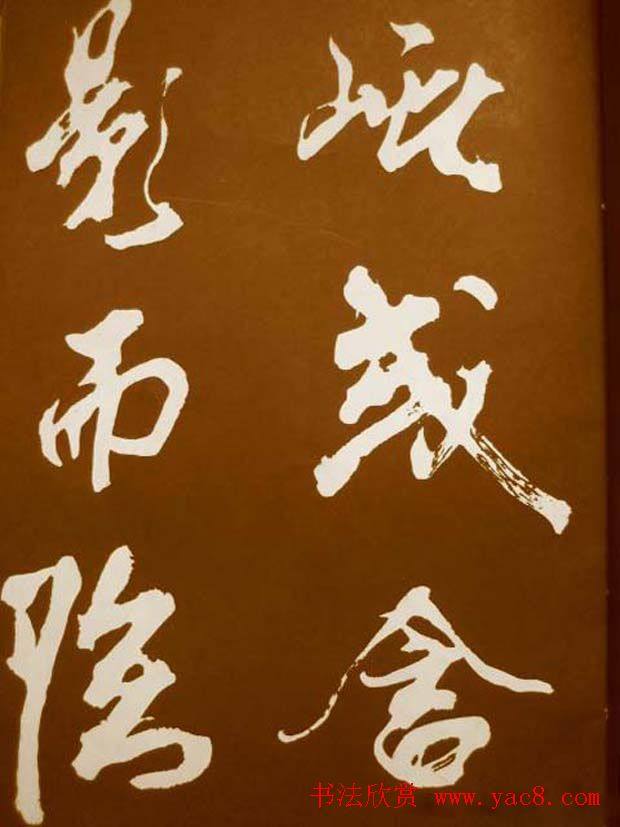 此或舍
影而
书法欣赏 www.yac8.com